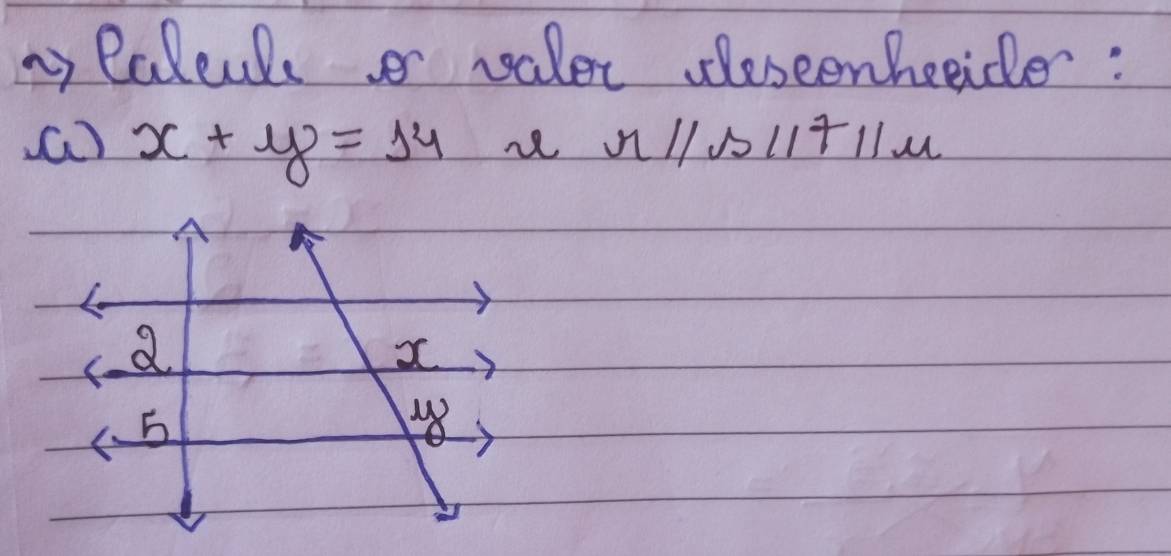 ~> Calcule o valor desconhecido:
a) x + y = 14 e r//s//t//u
2 x
5 y